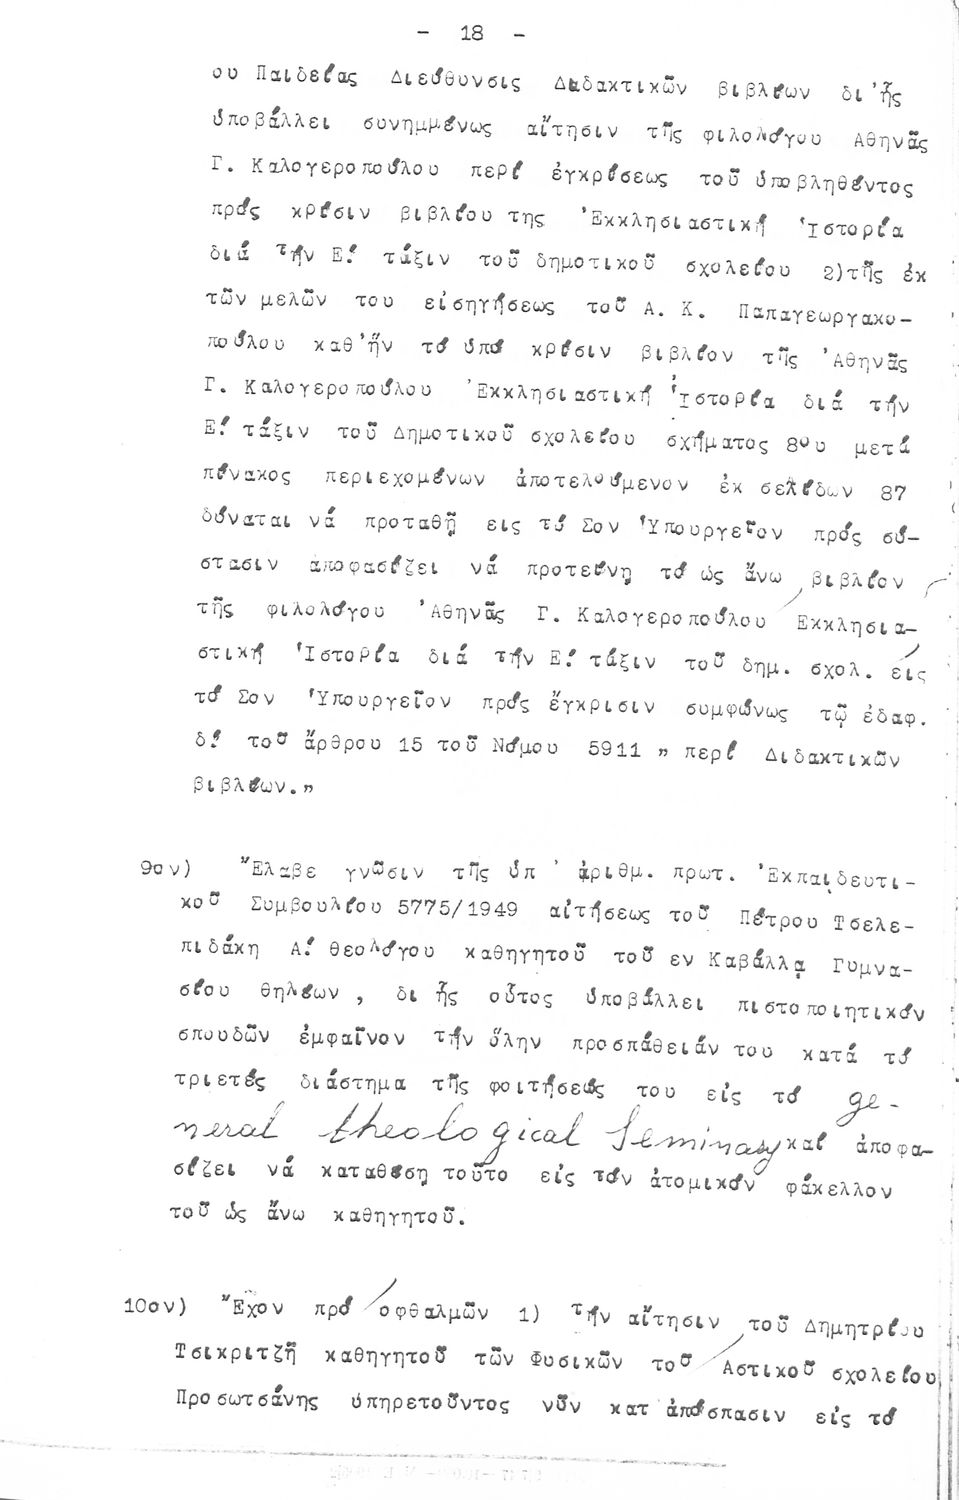 - 18 -
ου Παιδείας Διεύθυνσις Διδακτικῶν βιβλίων δι 'ἧς
ὑποβάλλει συνημμένως αἴτησιν τῆς φιλολόγου Αθηνᾶς
Γ. Καλογεροπούλου περί ἐγκρίσεως τοῦ ὑποβληθέντος
πρός κρίσιν βιβλίου της 'Εκκλησιαστική 'Ιστορία
διά τήν Ε! τάξιν τοῦ δημοτικοῦ σχολείου 2)τῆς ἐκ
τῶν μελῶν του εἰσηγήσεως τοῦ Α. Κ. Παπαγεωργακο-
πούλου καθ'ἥν τό ὑπό κρίσιν βιβλίον τῆς 'Αθηνᾶς
Γ. Καλογεροπούλου 'Εκκλησιαστική 'Ιστορία διά τήν
Ε! τάξιν τοῦ Δημοτικοῦ σχολείου σχήματος 8ου μετά
πίνακος περιεχομένων ἀποτελούμενον ἐκ σελίδων 87
δύναται νά προταθῇ εις τό Σον 'Υπουργεῖον πρός σύ-
στασιν ἀποφασίζει νά προτείνῃ τό ὡς ἄνω βιβλίον
τῆς φιλολόγου 'Αθηνᾶς Γ. Καλογεροπούλου Εκκλησια-
στική 'Ιστορία διά τήν Ε! τάξιν τοῦ δημ. σχολ. εἰς
τό Σον 'Υπουργεῖον πρός ἔγκρισιν συμφώνως τῷ ἐδαφ.
δ! τοῦ ἄρθρου 15 τοῦ Νόμου 5911 " περί Διδακτικῶν
βιβλίων."
9ον) "Ελαβε γνῶσιν τῆς ὑπ ' ἀριθμ. πρωτ. 'Εκπαιδευτι-
κοῦ Συμβουλίου 5775/1949 αἰτήσεως τοῦ Πέτρου Τσελε-
πιδάκη Α! θεολόγου καθηγητοῦ τοῦ εν Καβάλλᾳ Γυμνα-
σίου θηλέων , δι ἧς οὗτος ὑποβάλλει πιστοποιητικόν
σπουδῶν ἐμφαῖνον τήν ὅλην προσπάθειάν του κατά τό
τριετές διάστημα τῆς φοιτήσεώς του εἰς τό ge -
neral theological Seminary καί ἀποφα-
σίζει νά καταθέσῃ τοῦτο εἰς τόν ἀτομικόν φάκελλον
τοῦ ὡς ἄνω καθηγητοῦ.
10ον) "Εχον πρό οφθαλμῶν 1) τήν αἴτησιν τοῦ Δημητρίου
Τσικριτζῆ καθηγητοῦ τῶν Φυσικῶν τοῦ Αστικοῦ σχολείου
Προσωτσάνης ὑπηρετοῦντος νῦν κατ ἀπόσπασιν εἰς τό